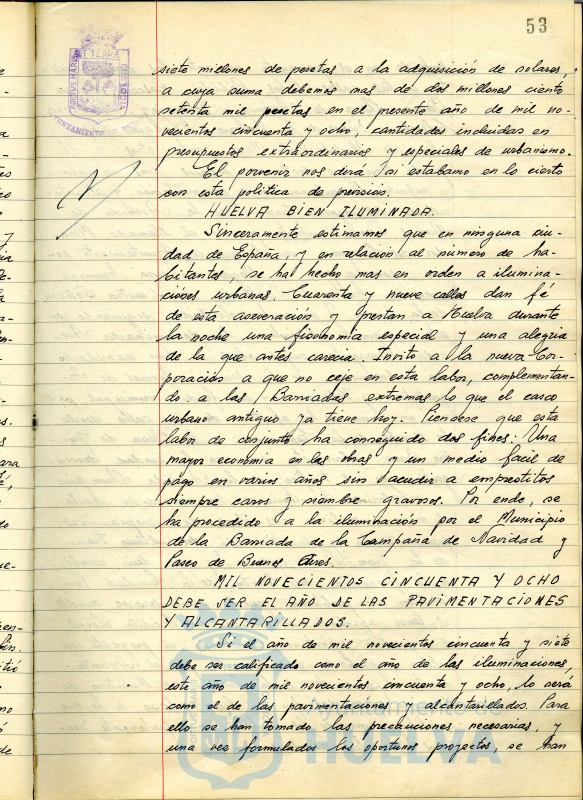 53
siete millones de pesetas a la adquisición de solares,
a cuya suma debemos mas de dos millones ciento
setenta mil pesetas en el presente año de mil no-
vecientos cincuenta y ocho, cantidades incluidas en
presupuestos extraordinarios y especiales de urbanismo.
El porvenir nos dirá si estabamos en lo cierto
con esta politica de prevision.
HUELVA BIEN ILUMINADA.
Sinceramente estimamos que en ninguna ciu-
dad de España, y en relación al número de ha-
bitantes, se ha hecho mas en orden a ilumina-
ciones urbanas. Cuarenta y nueve calles dan fé
de esta aseveración y prestan a Huelva durante
la noche una fisonomia especial y una alegria
de la que antes carecia. Invito a la nueva Cor-
poración a que no ceje en esta labor, complementan-
do a las Barriadas extremas lo que el casco
urbano antiguo ya tiene hoy. Piendese que esta
labor de conjunto ha conseguido dos fines: Una
mayor economia en las obras y un medio facil de
pago en varios años sin acudir a emprestitos
siempre caros y siembre gravosos. Por ende, se
ha procedido a la iluminación por el Municipio
de la Barriada de la Campaña de Navidad y
Paseo de Buenos Aires.
MIL NOVECIENTOS CINCUENTA Y OCHO
DEBE SER EL AÑO DE LAS PAVIMENTACIONES
Y ALCANTARILLADOS.
Si el año de mil novecientos cincuenta y siete
debe ser calificado como el año de las iluminaciones,
este año de mil novecientos cincuenta y ocho, lo será
como el de las pavimentaciones y alcantarillados. Para
ello se han tomado las precauciones necesarias, y
una vez formulados los oportunos proyectos, se han
HUELVA